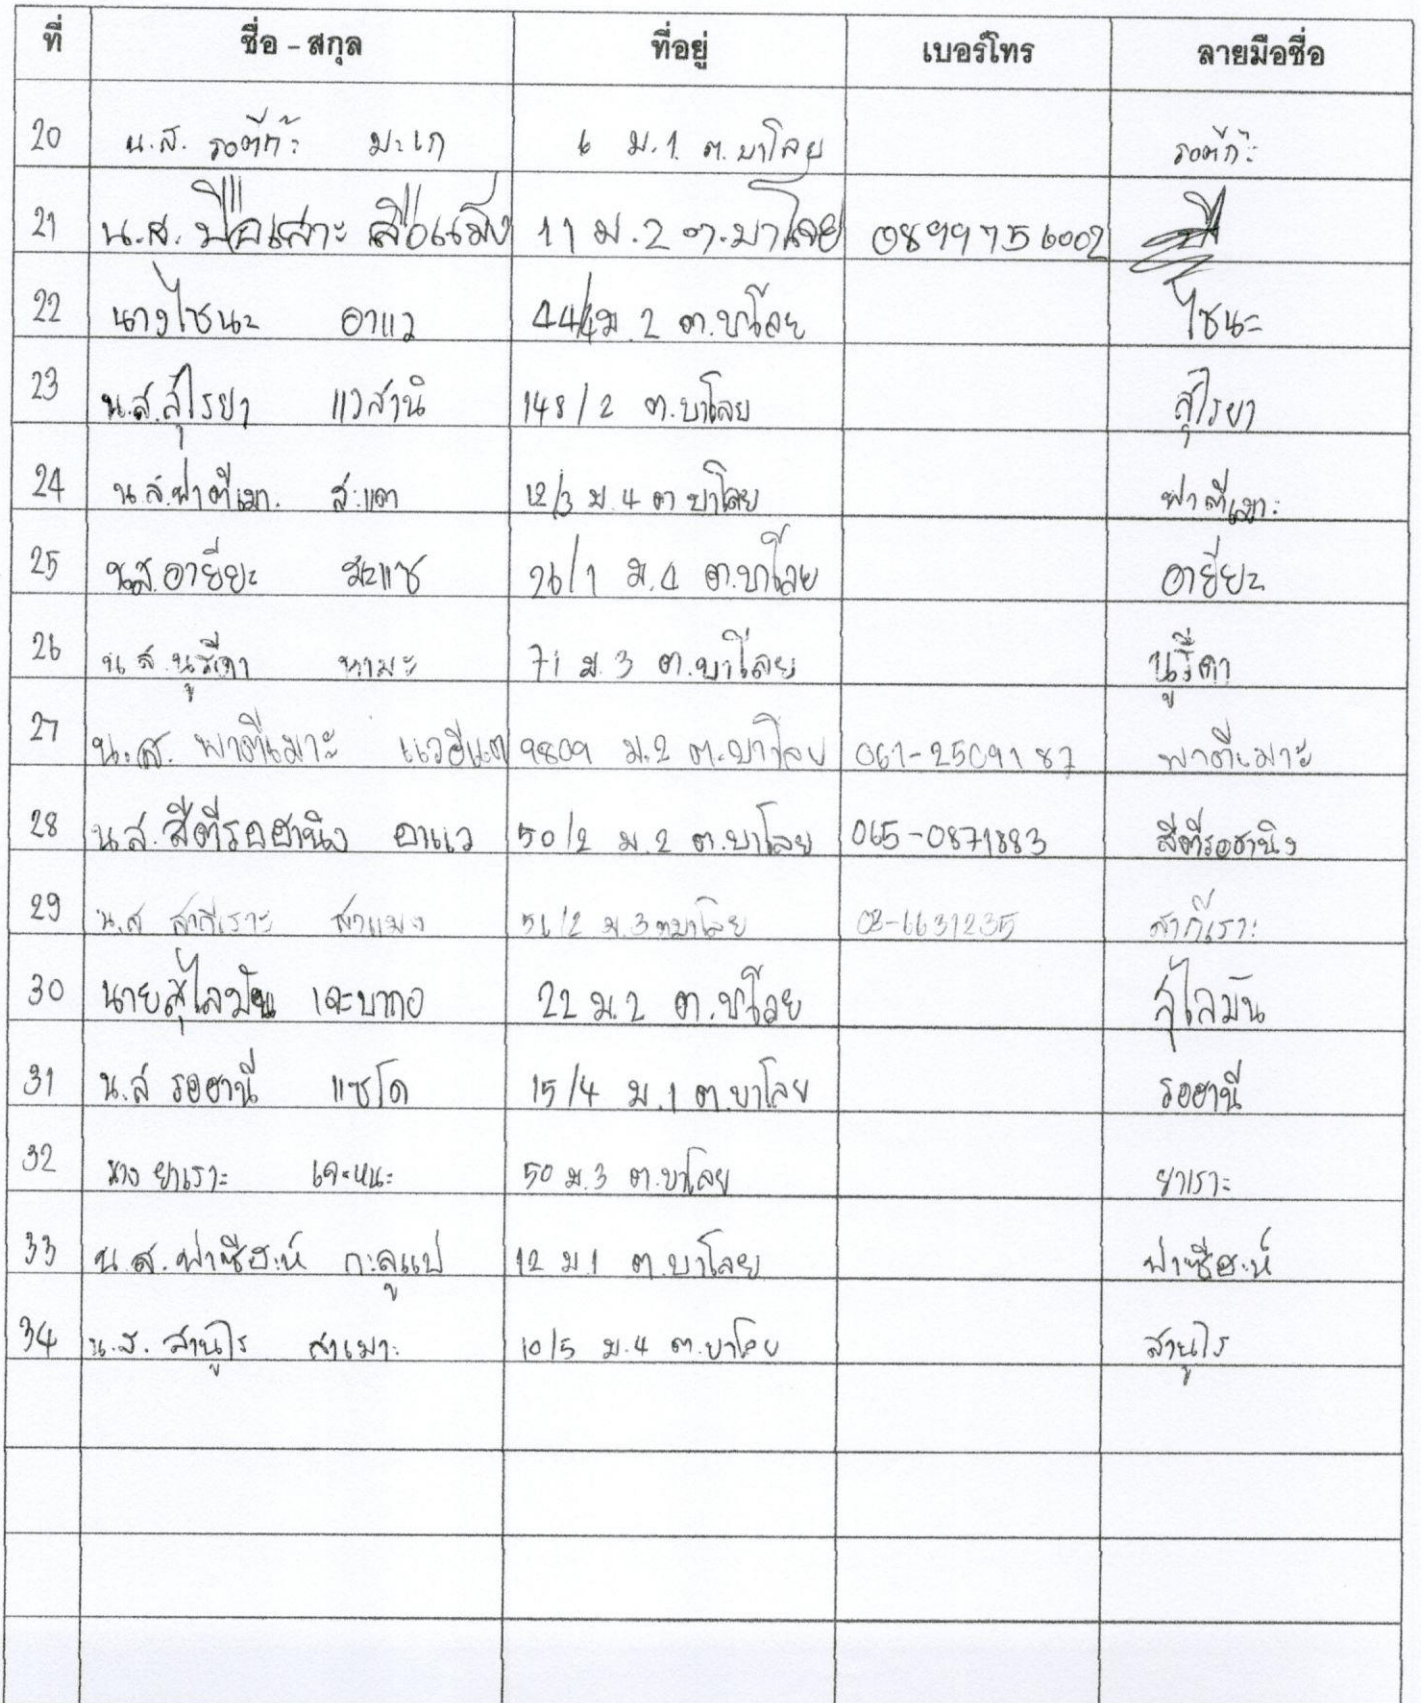 ที่ ชื่อ - สกุล ที่อยู่ เบอร์โทร ลายมือชื่อ
20 น.ส. รอตีก๊ะ มะเก 6 ม.1 ต.บาโลย รอตีก๊ะ
21 น.ส. สือแม็ง 11 ม.2 ต.บาโลย 0899756002
22 นางไซนะ อาแว 44/4 ม.2 ต.บาโลย ไซนะ
23 น.ส.สุไรยา แวสานิ 148/2 ต.บาโลย สุไรยา
24 น.ส.ฟาตีเมาะ สะแต 12/3 ม.4 ต บาโลย ฟาตีเมาะ
25 น.ส.อายียะ มะแซ 26/1 ม.4 ต.บาโลย อายียะ
26 น.ส.นูรีดา หามะ 71 ม.3 ต.บาโลย นูรีดา
27 น.ส. พาตีเมาะ แวอีแต 9809 ม.2 ต.บาโลย 061-2509187 พาตีเมาะ
28 น.ส.สีตีรอฮานิง อาแว 50/2 ม.2 ต.บาโลย 065-0871883 สีตีรอฮานิง
29 น.ส สากีเราะ สาแมง 56/2 ม.3 ต.บาโลย 02-6631235 สากีเราะ
30 นายสุไลมัน เจะบากอ 22 ม.2 ต.บาโลย สุไลมัน
31 น.ส รอฮานี แซโด 15/4 ม.1 ต.บาโลย รอฮานี
32 นาง ยาเราะ เจะหนะ 50 ม.3 ต.บาโลย ยาเราะ
33 น.ส.ฟาซีฮะห์ กะลูแป 12 ม.1 ต.บาโลย ฟาซีฮะห์
34 น.ส. สานูไร สาเมาะ 10/5 ม.4 ต.บาโลย สานูไร